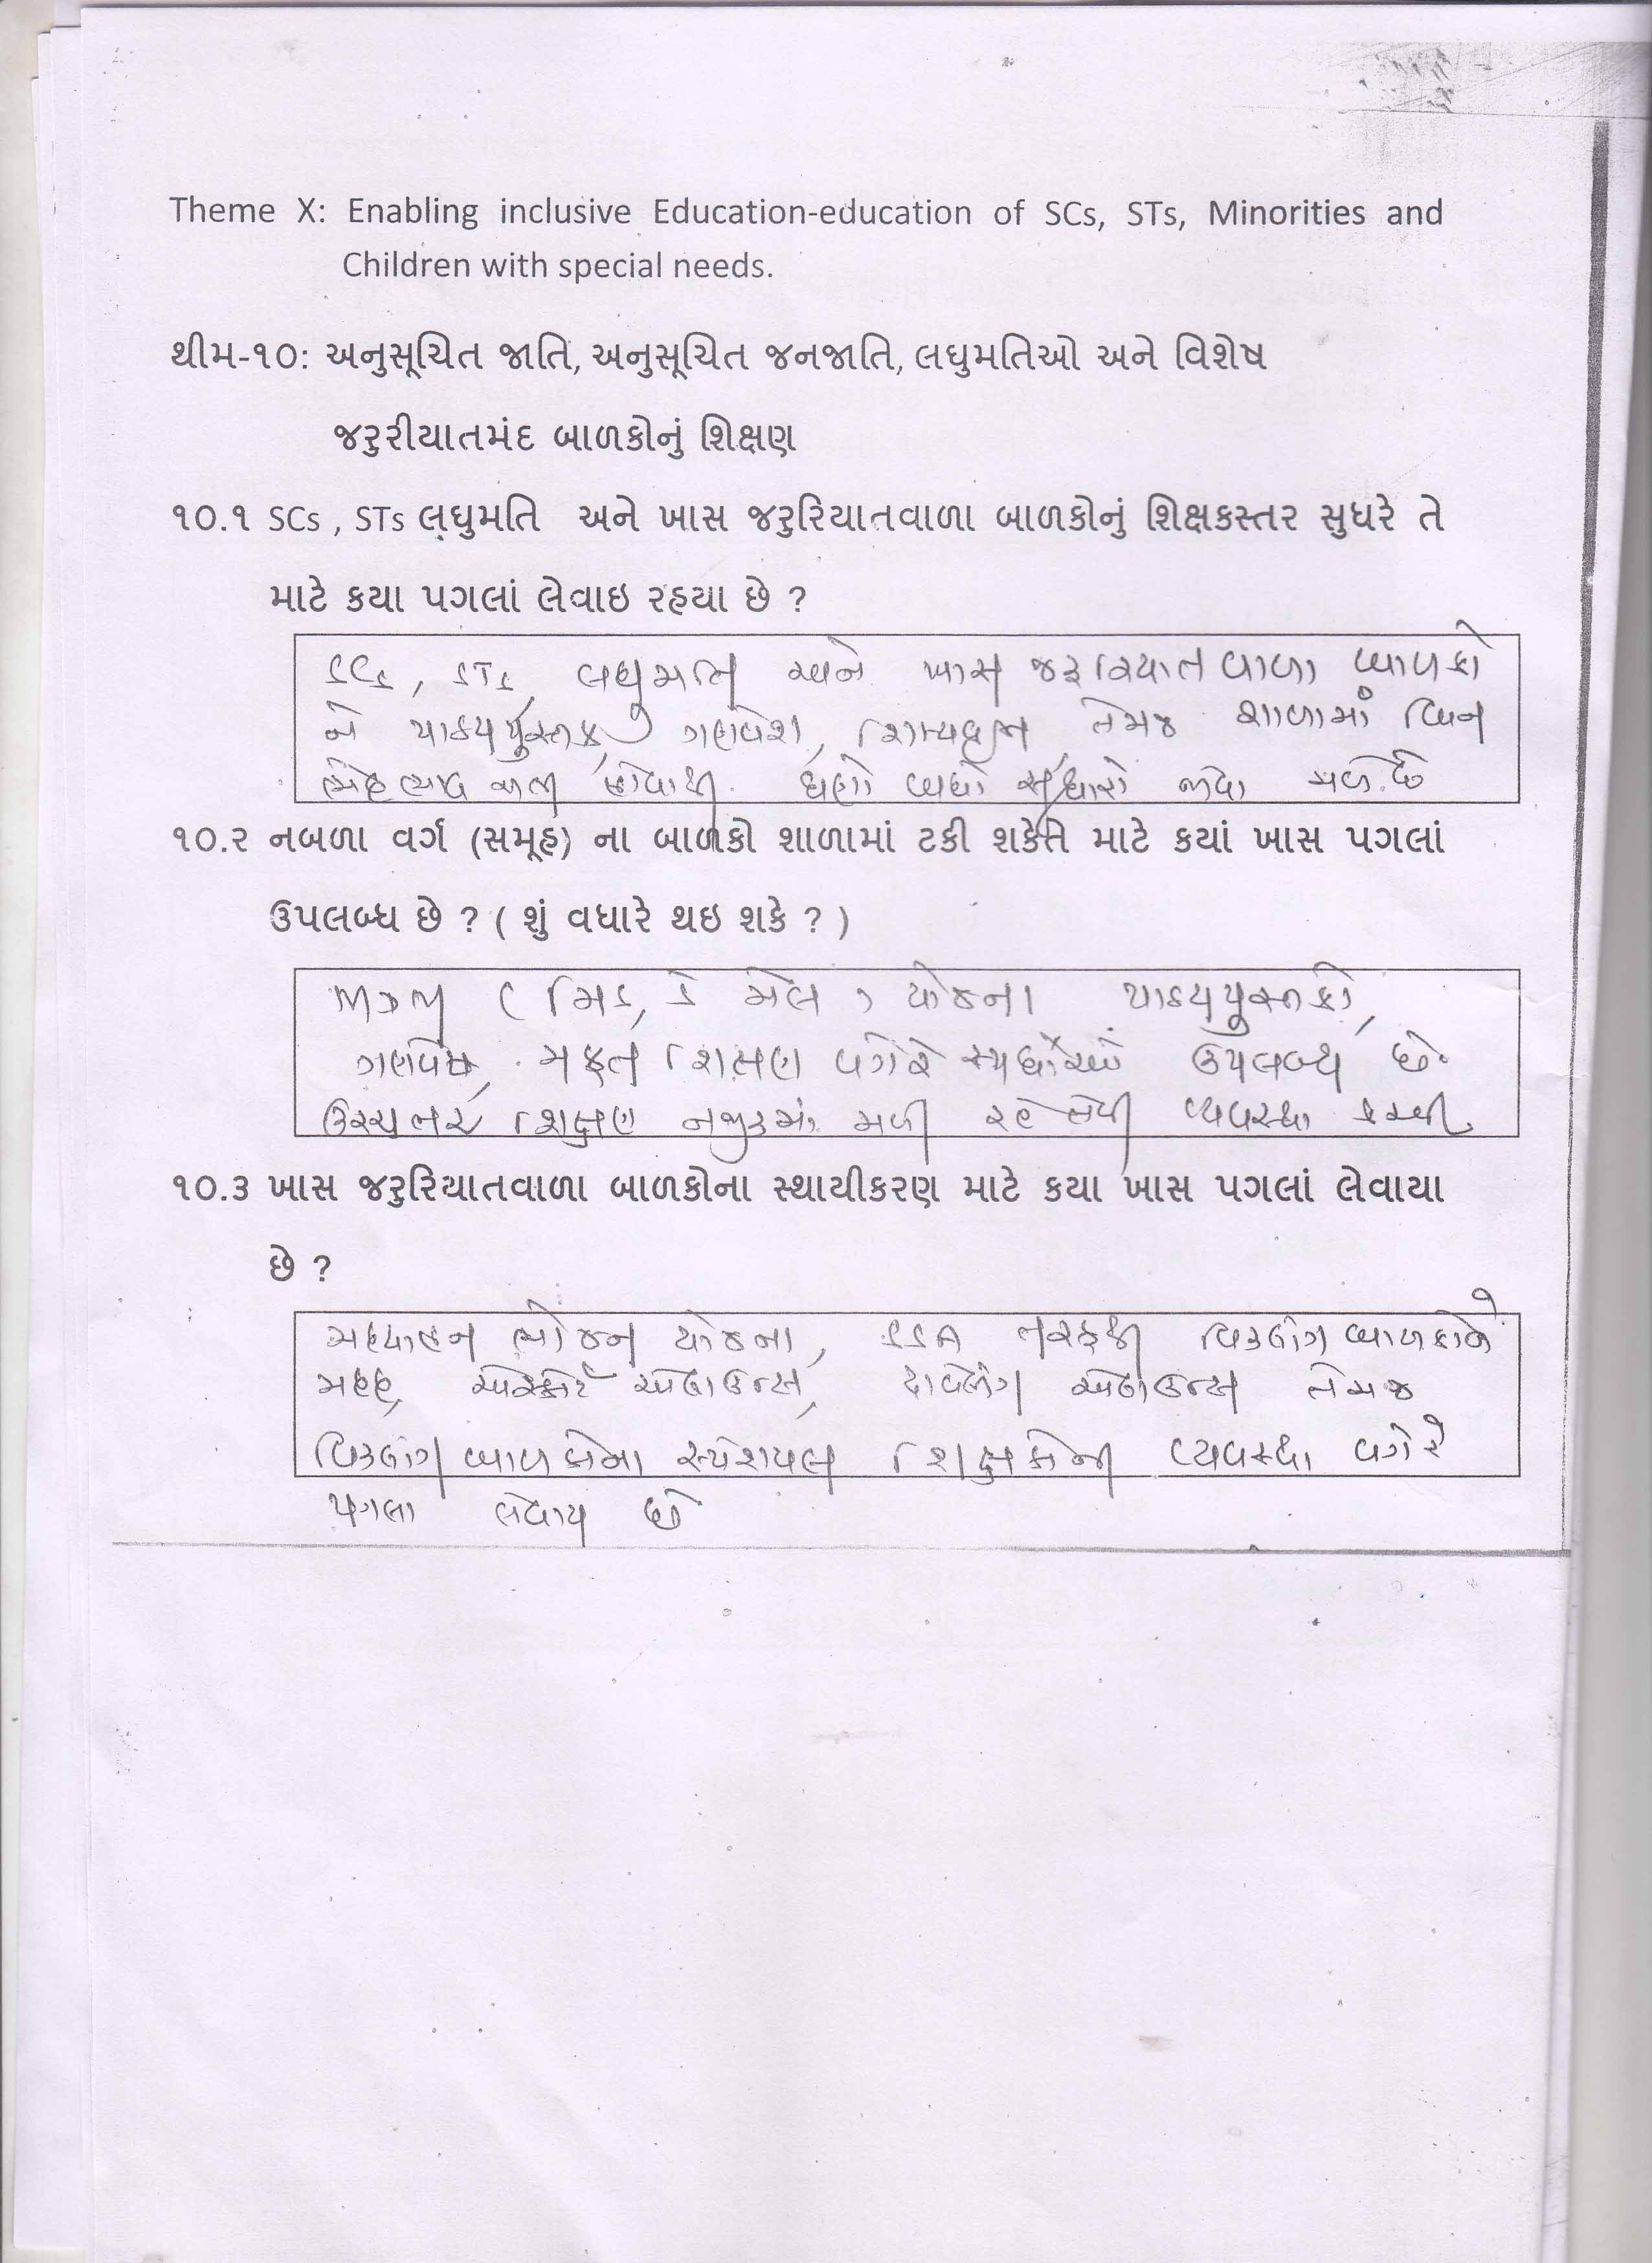 Theme X: Enabling inclusive Education-education of SCs, STs, Minorities and
Children with special needs.
થીમ-૧૦: અનુસૂચિત જાતિ, અનુસૂચિત જનજાતિ, લઘુમતિઓ અને વિશેષ
જરુરીયાતમંદ બાળકોનું શિક્ષણ
૧૦.૧ SCs , STs લઘુમતિ અને ખાસ જરુરિયાતવાળા બાળકોનું શિક્ષકસ્તર સુધરે તે
માટે કયા પગલાં લેવાઇ રહયા છે ?
SCs, STs, લઘુમતિ અને ખાસ જરૂરિયાત વાળા બાળકો
ને પાઠયપુસ્તક, ગણવેશ, શિષ્યવૃત્તિ, તેમજ શાળામાં બિન
ભેદભાવ હોવાથી. ઘણો બધો સુધારો જોવા મળે છે
૧૦.૨ નબળા વર્ગ (સમૂહ) ના બાળકો શાળામાં ટકી શકેતે માટે કયાં ખાસ પગલાં
ઉપલબ્ધ છે ? ( શું વધારે થઇ શકે ? )
MDM ( મિડ, ડે મેલ ) યોજના પાઠયપુસ્તકો,
ગણવેશ, મફત શિક્ષણ વગેરે ઉપલબ્ધ છે.
ઉચ્ચતર શિક્ષણ નજીકમાં મળી રહે તેવી વ્યવસ્થા કરવી.
૧૦.૩ ખાસ જરુરિયાતવાળા બાળકોના સ્થાયીકરણ માટે કયા ખાસ પગલાં લેવાયા
છે ?
મધ્યાહન ભોજન યોજના, SSA તરફથી વિકલાંગ બાળકોને
મદદ, એસ્કોર્ટ એલાઉન્સ, ટ્રાવેલીંગ એલાઉન્સ તેમજ
વિકલાંગ બાળકોના સ્પેશયલ શિક્ષકોની વ્યવસ્થા વગેરે
પગલા લેવાય છે